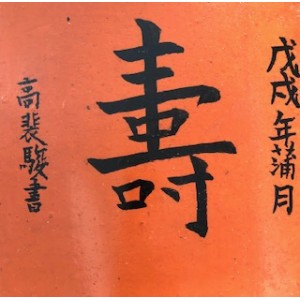 戊戌年蒲月
壽
高裴駿書